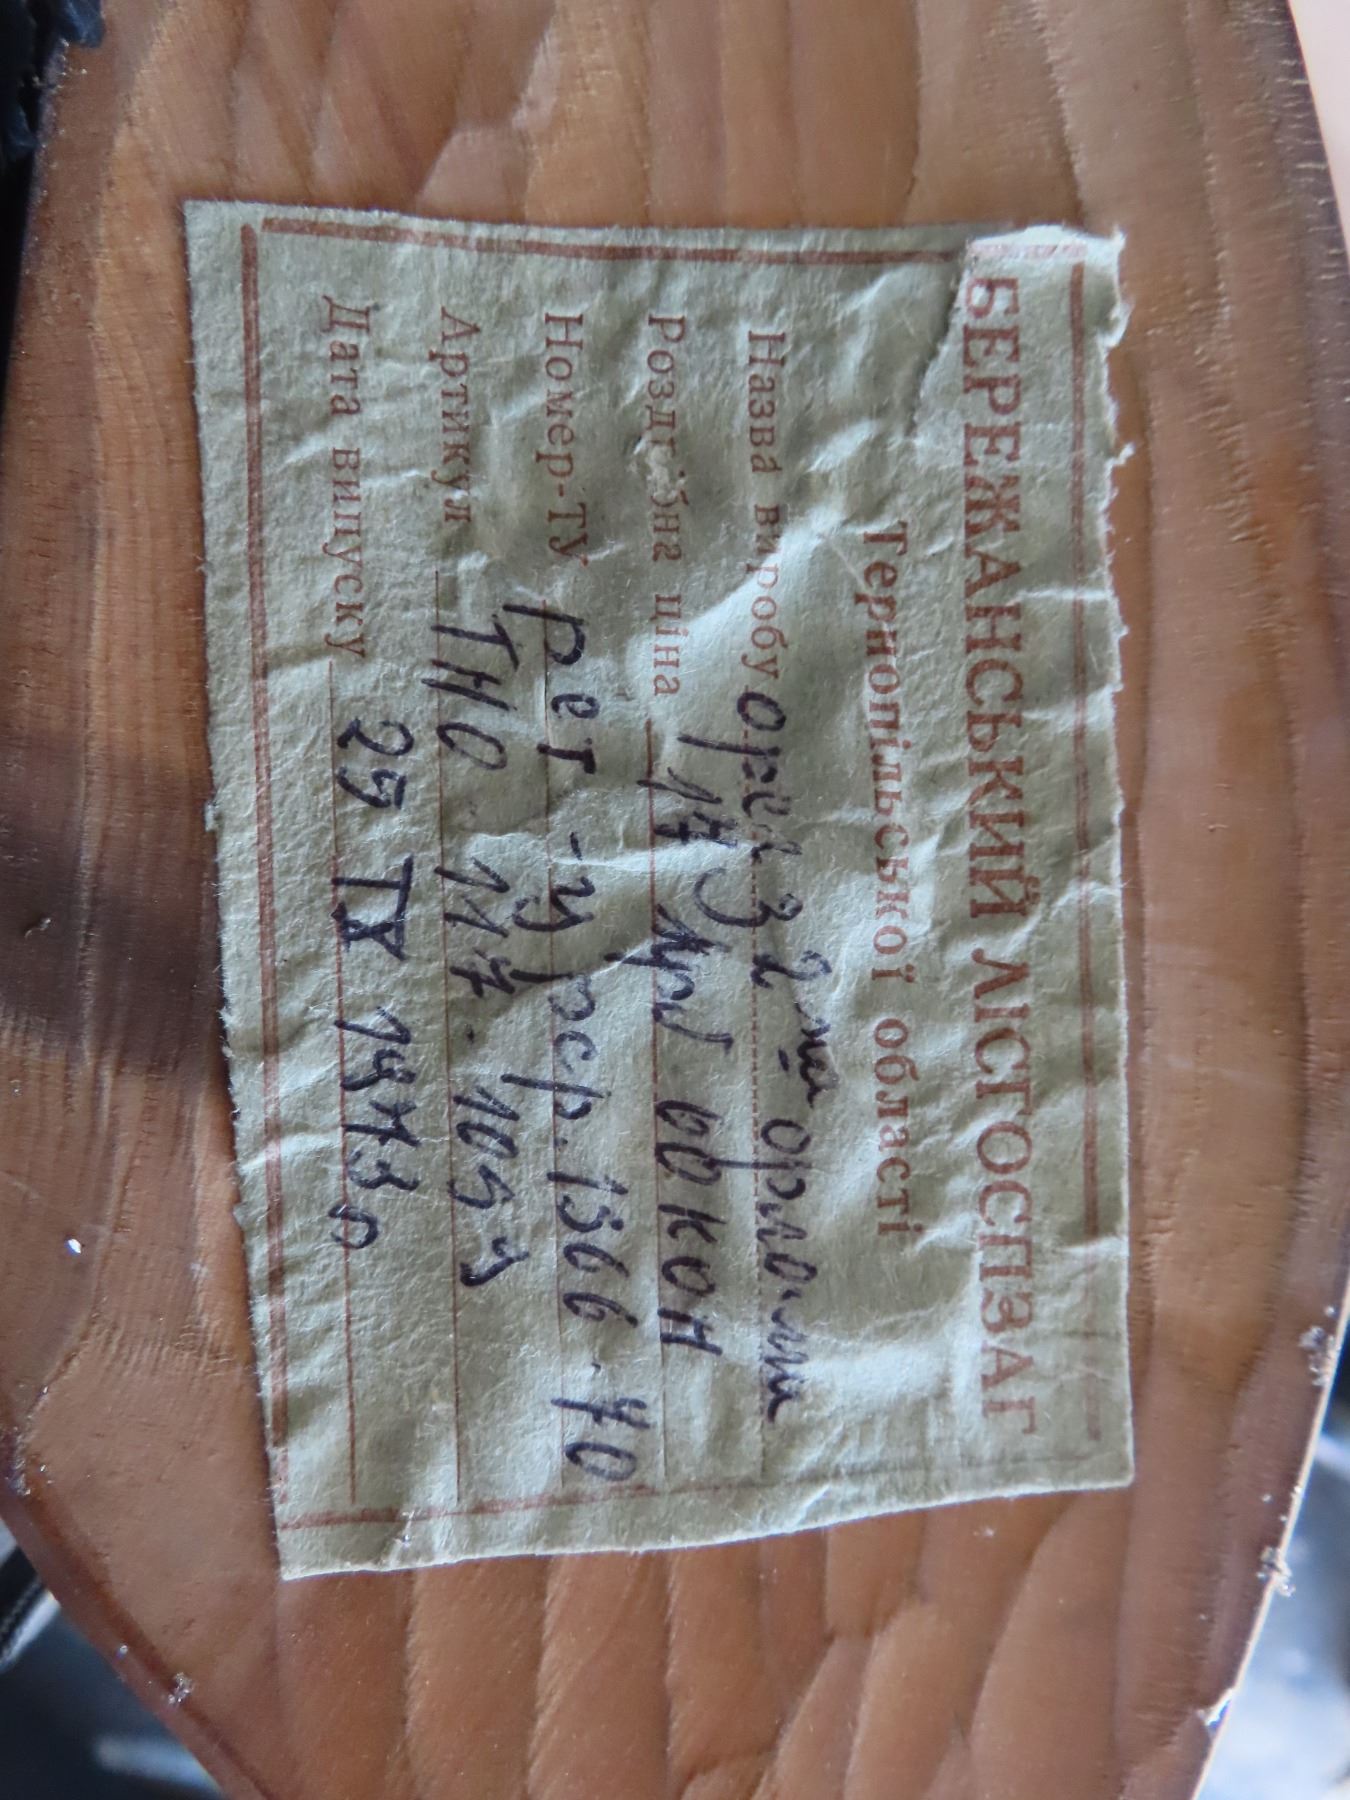 БЕРЕЖАНСЬКИЙ ЛІСГОСПЗАГ
Тернопільської області
Назва виробу орел з 2ма орлятами
Роздрібна ціна 17 крб 60 коп
Номер-ТУ рст-урср. 1566-70
Артикул ТНО 117.
Дата випуску 25 IX 1973 р